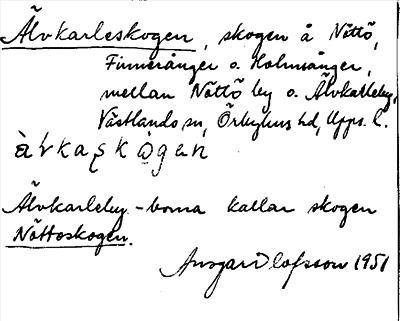 Älvkarleskogen, skogen å Nöttö,
Finnerånger o. Holmånger,
mellan Nöttö by o. Älvkarleby,
Västlands sn, Örbyhus hd, Upps. l.
Älvkarleby-borna kallar skogen
Nöttöskogen.
Ansgar Olofsson 1951